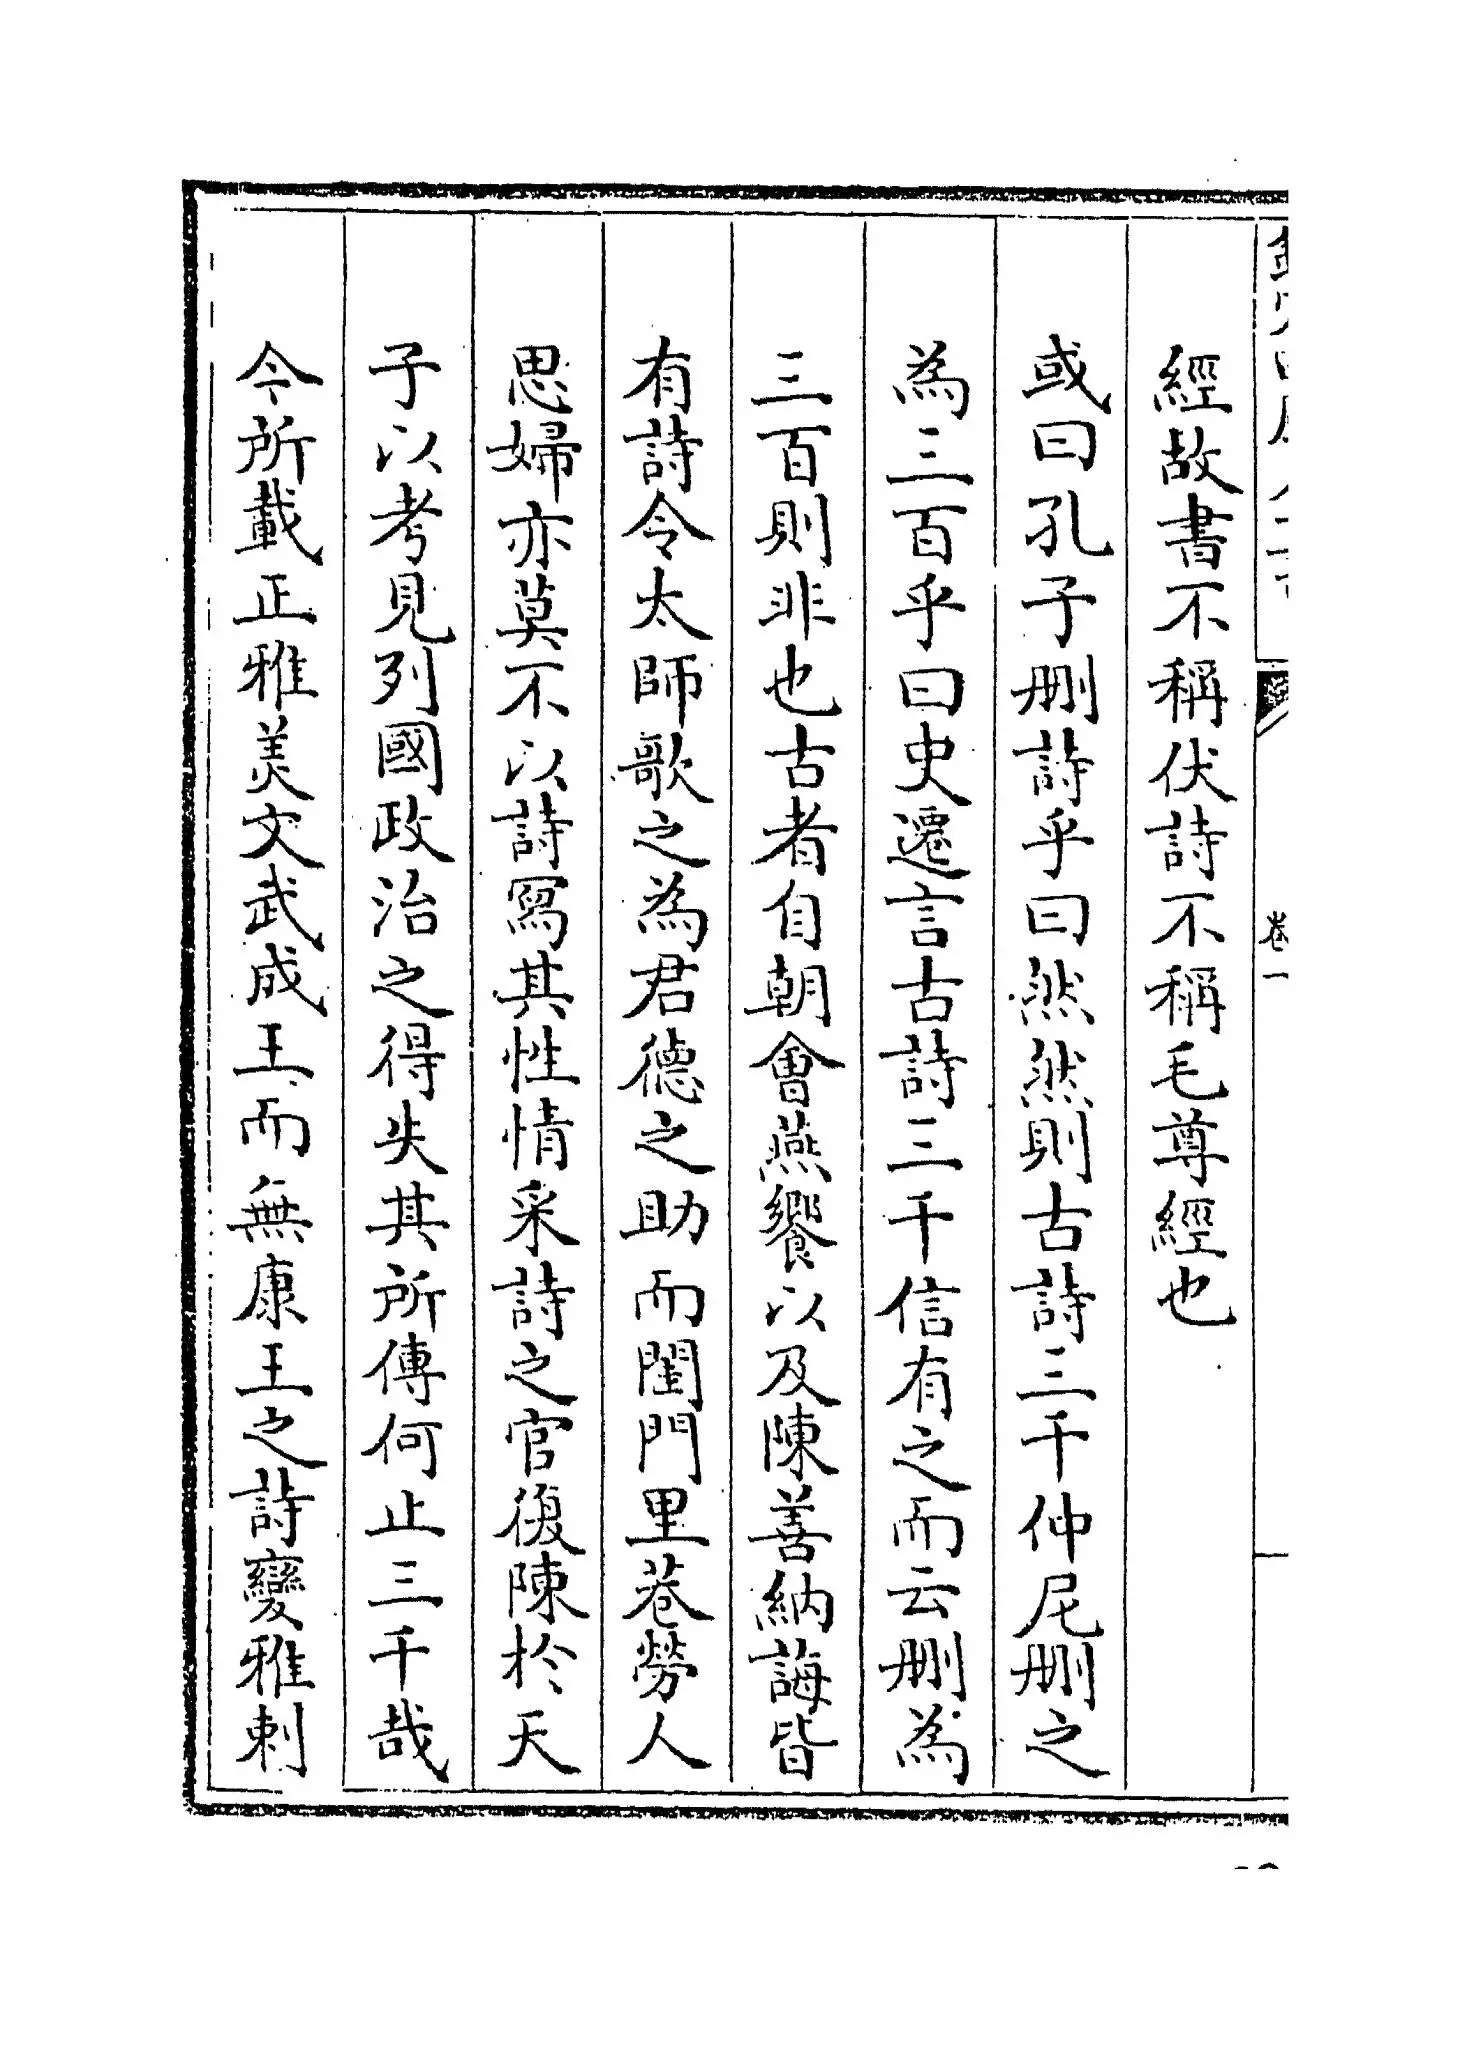 卷一
經故書不稱伏詩不稱毛尊經也
或曰孔子刪詩乎曰然然則古詩三千仲尼刪之
為三百乎曰史遷言古詩三千信有之而云刪為
三百則非也古者自朝會燕饗以及陳善納誨皆
有詩令太師歌之為君德之助而閨門里巷勞人
思婦亦莫不以詩寫其性情采詩之官復陳於天
子以考見列國政治之得失其所傳何止三千哉
今所載正雅美文武成王而無康王之詩變雅刺